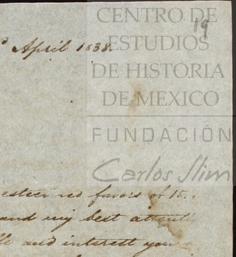 CENTRO DE
19
ESTUDIOS
April 1838.
DE HISTORIA
DE MEXICO
FUNDACIÓN
Carlos Slim
favors of 15.
and my best
and interest you